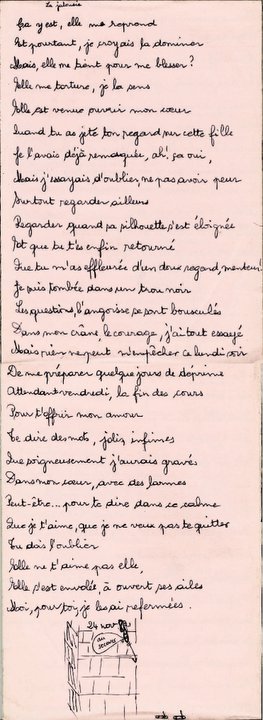 La jalousie
Ca y est, elle me reprend
Et pourtant, je croyais la dominer
Mais, elle me tient pour me blesser?
Elle me torture, je la sens
Elle est venue ouvrir mon cœur
Quand tu as jeté ton regard sur cette fille
Je l'avais déjà remarquée, ah! ça oui,
Mais j'essayais d'oublier, ne pas avoir peur
Surtout regarder ailleurs
Regarder quand sa silhouette s'est éloignée
Et que tu t'es enfin retourné
Que tu m'as effleurée d'un doux regard, menteur!
Je suis tombée dans un trou noir
Les questions, l'angoisse se sont bousculés
Dans mon crâne, le courage, j'ai tout essayé
Mais rien ne peut m'empêcher ce lundi soir
De me préparer quelques jours de déprime
Attendant vendredi, la fin des cours
Pour t'offrir mon amour
Te dire des mots, jolis, infimes
Que soigneusement j'aurais gravés
Dans mon cœur, avec des larmes
Peut-être... pour te dire dans ce calme
Que je t'aime, que je ne veux pas te quitter
Tu dois l'oublier
Elle ne t'aime pas elle,
Elle s'est envolée, à ouvert ses ailes
Moi, pour toi, je les ai refermées.
24 nov
au secours